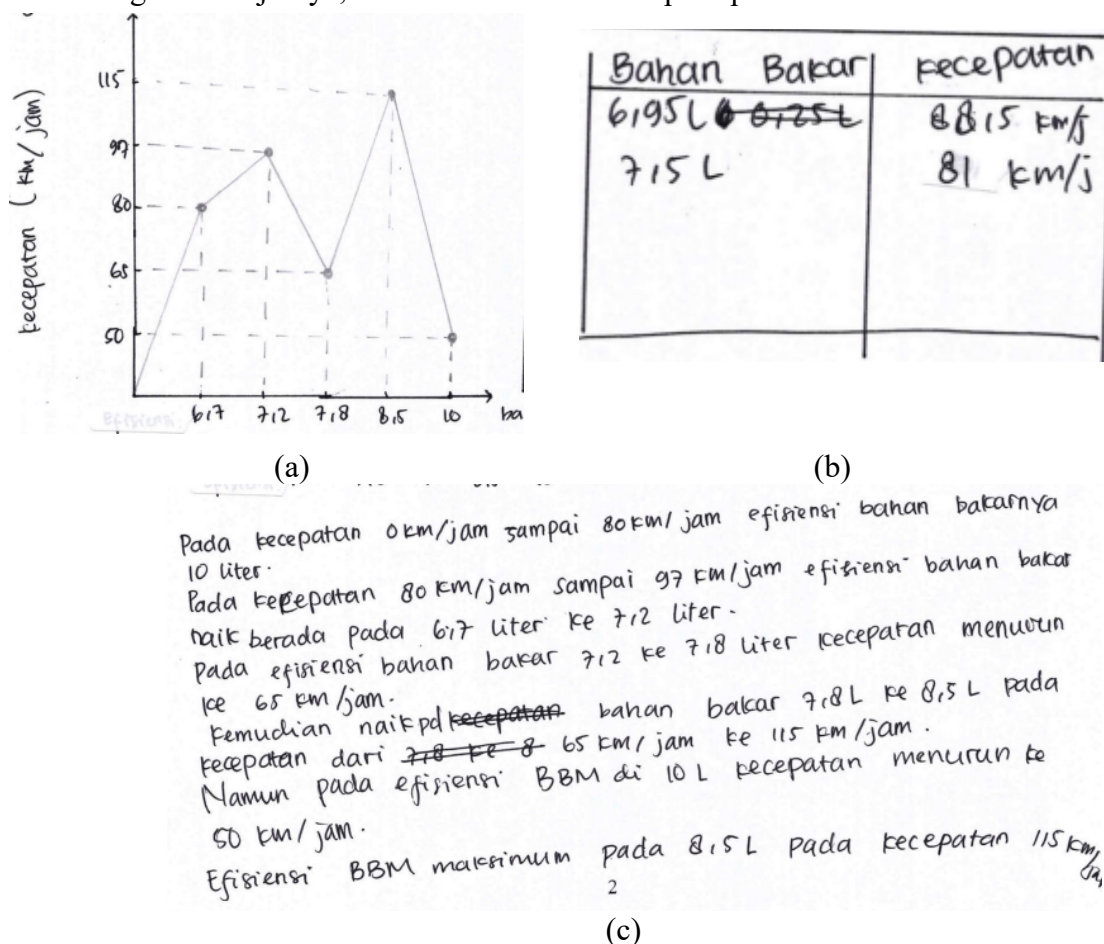 kecepatan (km/jam)
115
90
80
65
50
6,7 7,2 7,8 8,5 10 ba
Efisiensi
(a)
Bahan Bakar kecepatan
6,95 L 6,25 L 88,5 km/j
7,5 L 81 km/j
(b)
Pada kecepatan 0 km/jam sampai 80 km/jam efisiensi bahan bakarnya
10 liter.
Pada kecepatan 80 km/jam sampai 97 km/jam efisiensi bahan bakar
naik berada pada 6,7 liter ke 7,2 liter.
Pada efisiensi bahan bakar 7,2 ke 7,8 liter kecepatan menurun
ke 65 km/jam.
Kemudian naik pd kecepatan bahan bakar 7,8 L ke 8,5 L pada
kecepatan dari 7,8 ke 8 65 km/jam ke 115 km/jam.
Namun pada efisiensi BBM di 10 L kecepatan menurun ke
50 km/jam.
Efisiensi BBM maksimum pada 8,5 L pada kecepatan 115 km/ja
2
(c)